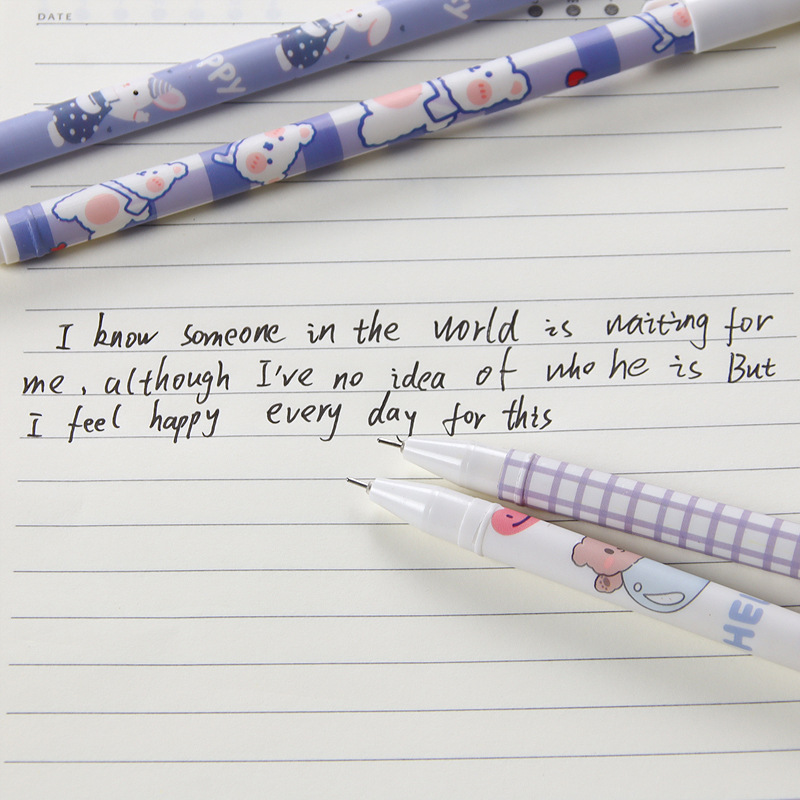 DATE
PPY
I know someone in the world is waiting for
me, although I've no idea of who he is But
I feel happy every day for this
HE